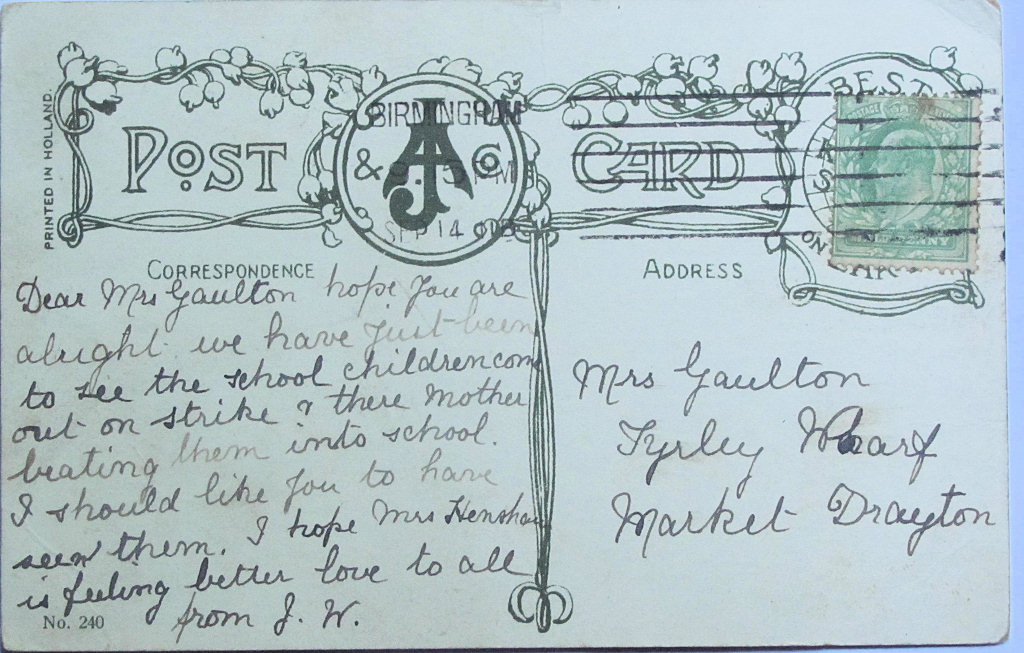 PRINTED IN HOLLAND.
POST CARD
BIRMINGHAM
& Co
AJ
PM
SEP 14
BEST
ON
CORRESPONDENCE
ADDRESS
Dear Mrs Gaulton hope you are
alright we have just been
to see the school children come
out on strike & there Mother
beating them into school.
I should like you to have
seen them. I hope Mrs Henshaw
is feeling better love to all
from J. W.
No. 240
Mrs Gaulton
Tyrley Wharf
Market Drayton